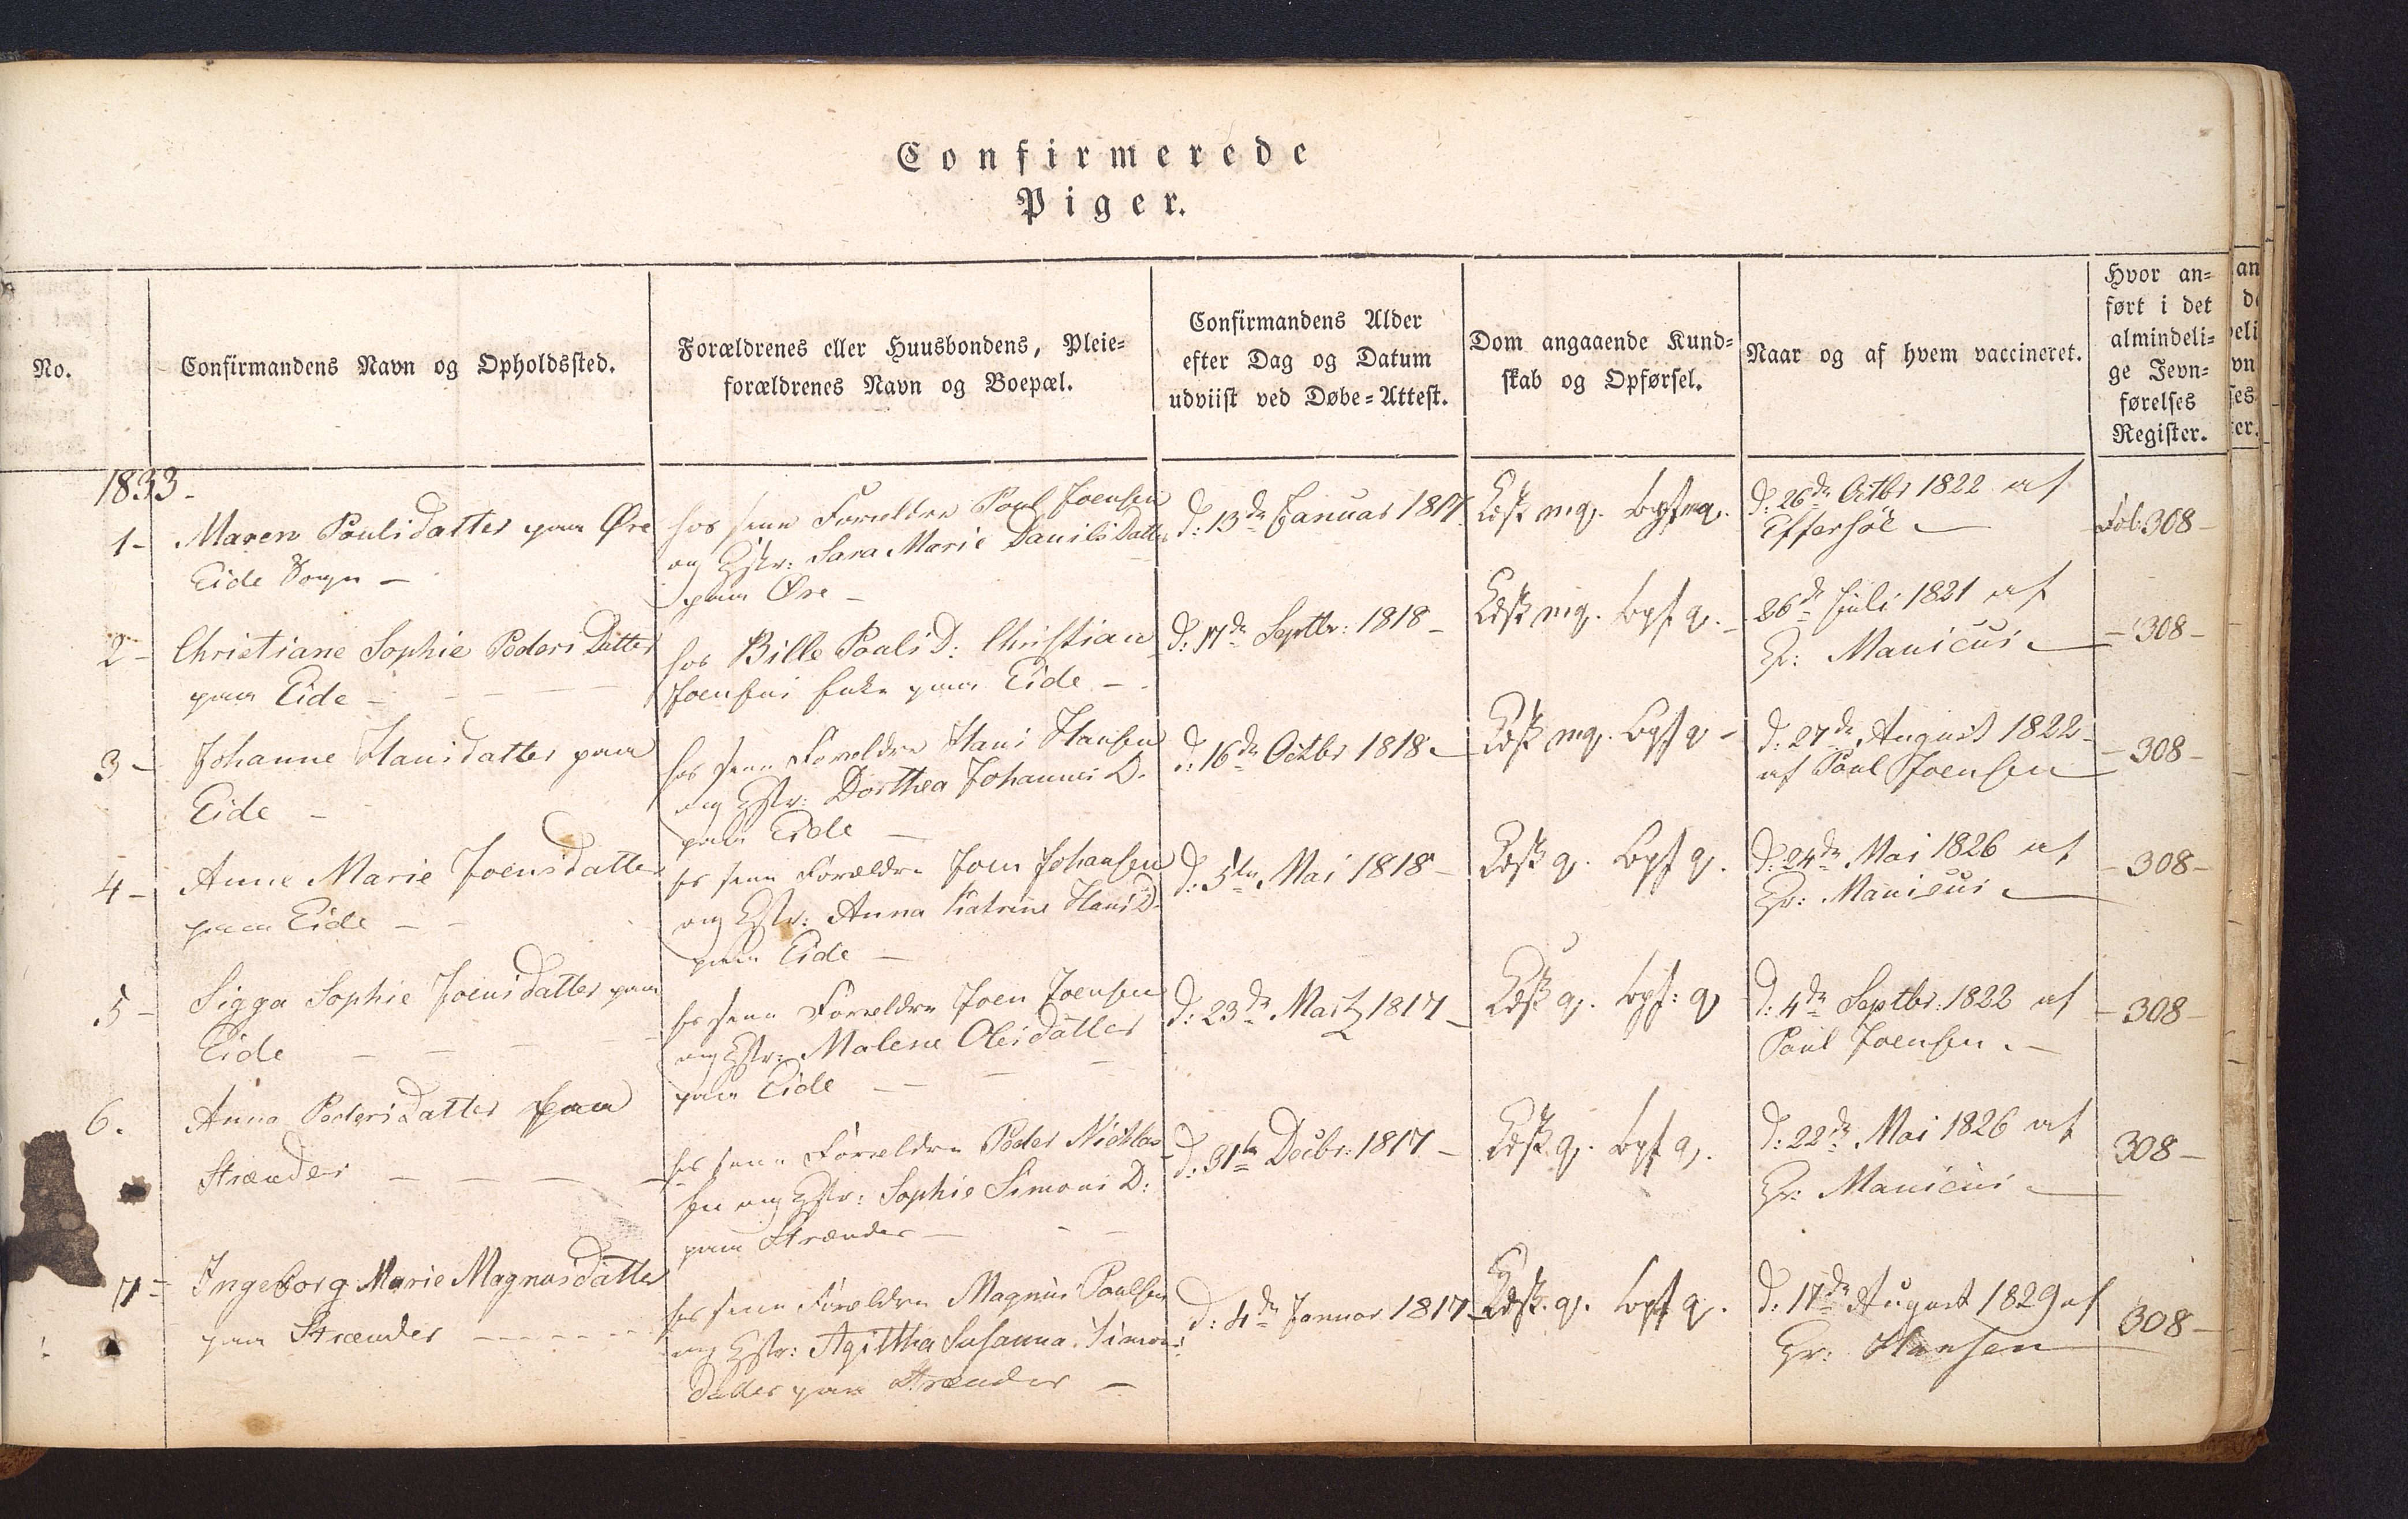 Confirmerede
Piger.
No.
Confirmandens Navn og Opholdssted.
Forældrenes eller Huusbondens, Pleie-
forældrenes Navn og Boepæl.
Confirmandens Alder
efter Dag og Datum
udviist ved Døbe-Attest.
Dom angaaende Kund-
skab og Opførsel.
Naar og af hvem vaccineret.
Hvor an-
ført i det
almindeli-
ge Jevn-
førelses
Register.
1833-
1- Maren Poulsdatter paa Øre
Eide Sogn -
hos sine Forældre Poul Joensen
og Hstr: Sara Marie Danils Datter
paa Øre -
d: 13de Januar 1817
Kdsk mg. Opf mg.
d: 26de Octbr 1822 af
Fol: 308-
2- Christiane Sophie Peders Datter
paa Eide -
hos Bille Pouls D: Christian
Joensens Enke paa Eide -
d: 17de Septbr: 1818-
Kdsk mg. Opf g.
26de Juli 1821 af
Hr: Manicus
- 308-
3- Johanne Hansdatter paa
Eide -
hos sine Forældre Hans Hansen
og Hstr: Dorthea Johannes D.
paa Eide -
d: 16de Octbr 1818-
Kdsk mg. Opf g -
d: 27de August 1822-
af Poul Joensen
- 308-
4- Anne Marie Joensdatter
paa Eide - -
hos sine Forældre Joen Johansen
og Hstr: Anna Katrine Hans D.
paa Eide -
d: 5te Mai 1818-
Kdsk g. Opf g.
d: 24de Mai 1826 af
Hr: Manicus
- 308-
5- Sigga Sophie Joensdatter paa
Eide - - -
hos sine Forældre Joen Joensen
og Hstr: Malene Olesdatter
paa Eide - -
d: 23de Martz 1817-
Kdsk g. Opf: g
d: 4de Septbr: 1822 af
Poul Joensen. -
- 308-
6. Anna Pedersdatter paa
Strænder - - - -
hos sine Forældre Peder Nicklas-
sen og Hstr: Sophie Simons D:
paa Strænder -
d: 31te Decbr: 1817-
Kdsk g. Opf g.
d: 22de Mai 1826 af
Hr: Manicus
308-
7- Ingeborg Marie Magnusdatter
paa Strænder - - - - -
hos sine Forældre Magnus Poulsen
og Hstr: Agittha Susanna Simons
datter paa Strænder -
d: 4de Januar 1817-
Kdsk. g. Opf g.
d: 17de August 1829 af
Hr: Hansen
308-